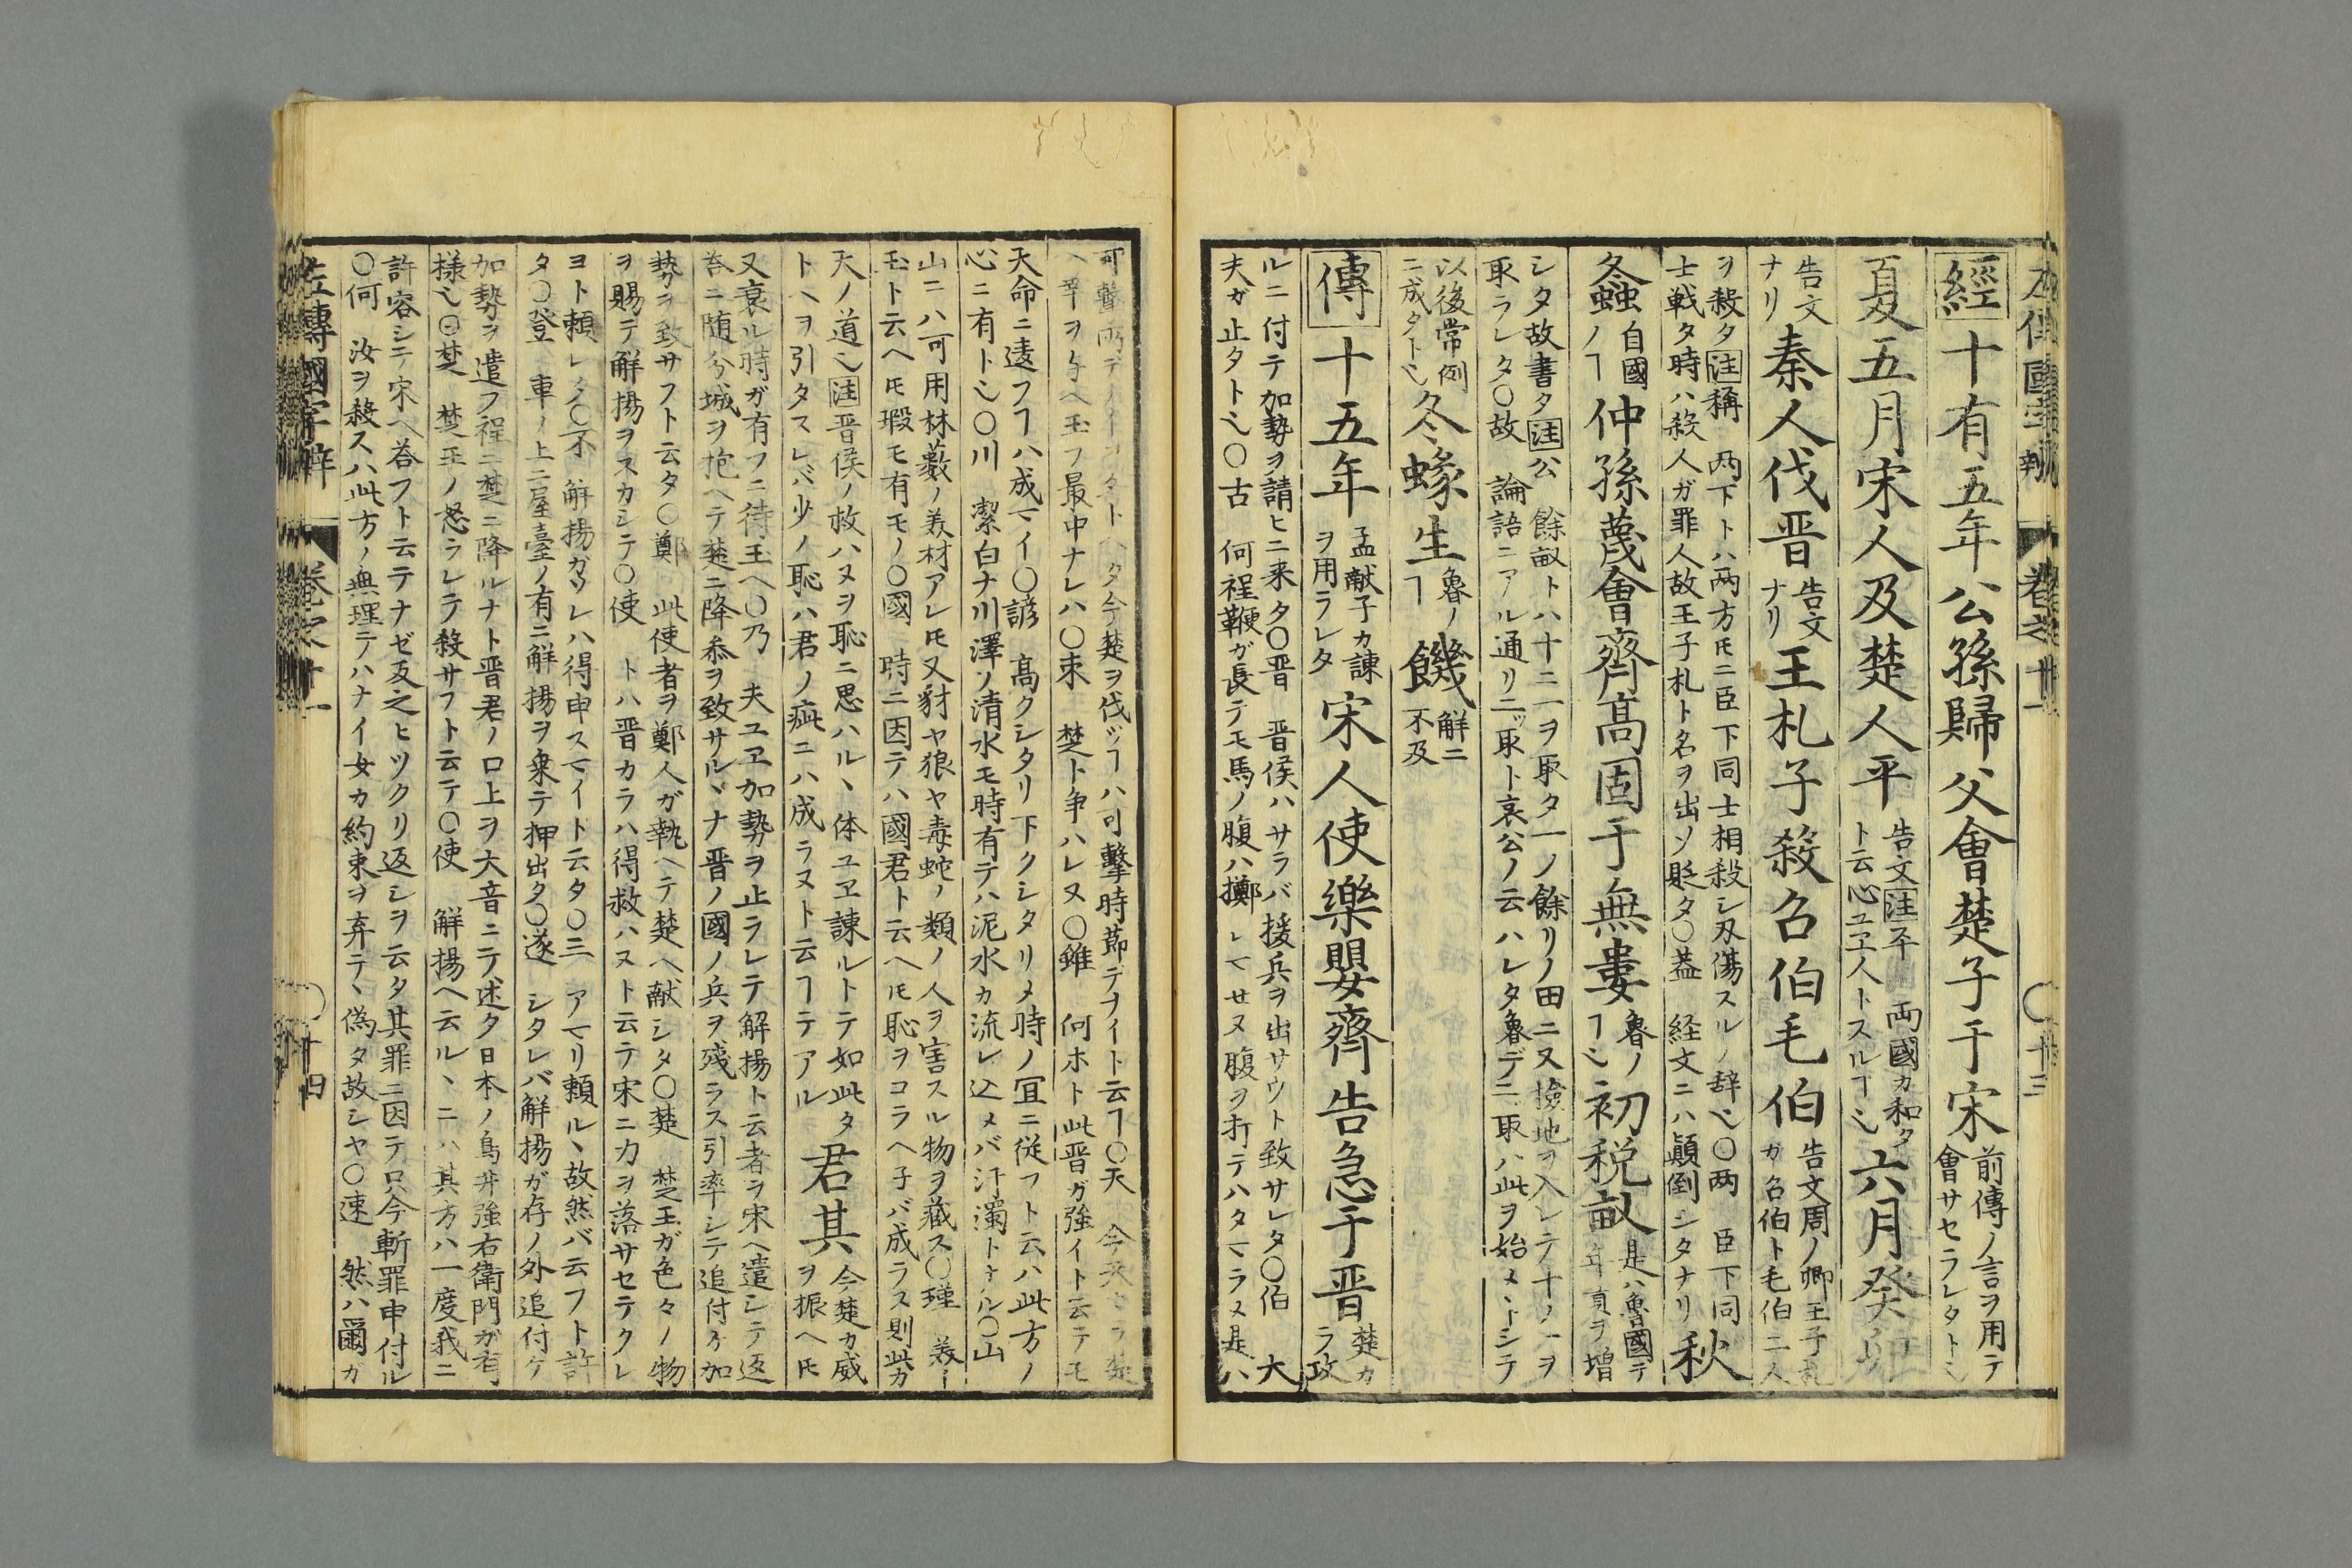 經十有五年公孫歸父會楚子于宋前傳ノ言ヲ用テ
會サセラレタト
夏五月宋人及楚人平告文注平 両國カ和タ
ト云心ユヱ人トスルヿ六月癸卯
告文
ナリ秦人伐晋告文
ナリ王札子殺召伯毛伯告文周ノ卿王子札
ガ召伯ト毛伯二人
ヲ殺タ注稱 兩下トハ两方ヒ二臣下同士相殺シ刄傷スルノ辞〇两 臣下同
士戦タ時ハ殺人ガ罪人故王子札ト名ヲ出ソ貶タ〇葢 経文ニハ顛倒シタナリ秋
螽自國
ノヿ仲孫蔑會齊髙固于無婁魯ノ
ヿ初税畝是ハ魯國テ
年貢ヲ増
シタ故書タ注公 餘畝トハ十ニ一ヲ取タ一ノ餘リノ田ニ又撿地ヲ入レテ十ノ一ヲ
取ラレタ〇故 論語ニアル通リ二ッ取ト哀公ノ云ハレタ魯デ二取ハ此ヲ始メトシテ
以後常例
ニ成タト冬蝝生魯ノ
ヿ饑解ニ
不及
傳十五年孟献子カ諌
ヲ用ラレタ宋人使樂嬰齊告急于晋楚カ
ラ攻
ルニ付テ加勢ヲ請ヒニ来タ〇晋 晋侯ハサラバ援兵ヲ出サウト致サレタ〇伯 大
夫ガ止タト〇古 何程鞭ガ長テモ馬ノ腹ハ擲レマセヌ腹ヲ打テハタマラヌ是ハ
今楚ヲ伐ッヿハ可擊時莭デナイト云ヿ〇天 今天
最中ナレハ〇未 楚ト争ハレヌ〇雖 何ホト此晋ガ強イト云テモ
天命ニ逺フヿハ成マイ〇諺 髙クシタリ下クシタリメ時ノ冝ニ従フト云ハ此方ノ
心ニ有ト〇川 潔白ナ川澤ノ清水モ時有テハ泥水カ流レ込メバ汙濁トナル〇山
山ニハ可用林藪ノ美材アレ㐅又豺ヤ狼ヤ毒蛇ノ類ノ人ヲ害スル物ヲ藏ス〇瑾 美
玉ト云ヘ㐅瑕モ有モノ〇國 時ニ因テハ國君ト云ヘ㐅恥ヲコラヘ子バ成ラス則此ガ
天ノ道注晋侯ノ救ハヌヲ恥ニ思ハル丶体ユヱ諌ルトテ如此タ君其今楚カ威
トヘヲ引タスレバ少ノ恥ハ君ノ疵ニハ成ラヌト云ヿテアル ヲ振ヘ㐅
又衰ル時ガ有フニ待玉ヘ〇乃 夫ユヱ加勢ヲ止ラレテ解揚ト云者ヲ宋ヘ遣シテ返
荅ニ随分城ヲ抱ヘテ楚ニ降叅ヲ致サル丶ナ晋ノ國ノ兵ヲ残ラス引率シテ追付ケ加
勢ヲ致サフト云タ〇鄭 此使者ヲ鄭人ガ執ヘテ楚ヘ献シタ〇楚 楚王ガ色々ノ物
ヲ賜テ解揚ヲスカシテ〇使 トハ晋カラハ得救ハヌト云テ宋ニ力ヲ落サセテクレ
ヨト頼レタ〇不 解揚ガソレハ得申スマイト云タ〇三 アマリ頼ル丶故然バ云フト許
タ〇登 車ノ上ニ屋臺ノ有ニ解揚ヲ乗テ押出タ〇遂 シタレバ解揚ガ存ノ外追付ケ
加勢ヲ遣フ程ニ楚ニ降ルナト晋君ノ口上ヲ大音ニテ述タ日本ノ鳥井強右衛門ガ有
様〇楚 楚王ノ怒ラレテ殺サフト云テ〇使 解揚ヘ云ル丶ニハ其方ハ一度我ニ
許容シテ宋ヘ荅フト云テナゼ反之ヒツクリ返シヲ云タ其罪ニ因テ只今斬罪申付ル
〇何 汝ヲ殺スハ此方ノ無理テハナイ女カ約束ヲ弃テ丶偽タ故シヤ〇速 然ハ爾ガ
左傳國字辯 卷之十一 〇十四